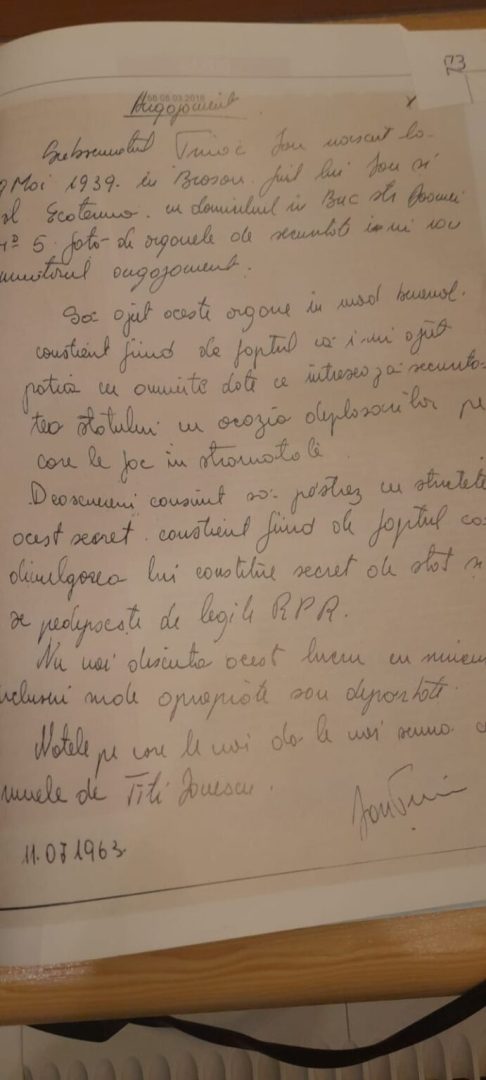 73
Angajament
66 06.03.2018
Subsemnatul Ion născut la
9 Mai 1939. în Brașov. fiul lui Ion și
al Ecaterina. cu domiciliul în Buc str.
nº 5. față de organele de securitate îmi iau
următorul angajament.
Să ajut aceste organe în mod benevol.
conștient fiind de faptul că îmi ajut
patria cu anumite date ce intresează securita-
tea statului cu ocazia deplasărilor pe
care le fac în străinătate.
Deasemeni consimt să păstrez cu strictețe
acest secret. conștient fiind de faptul că
divulgarea lui constitue secret de stat și
se pedepsește de legile R P R.
Nu voi discuta acest lucru cu nimeni
inclusiv rude apropiate sau depărtate.
Notele pe care le voi da le voi semna cu
numele de Titi Ionescu.
11.07 1963.